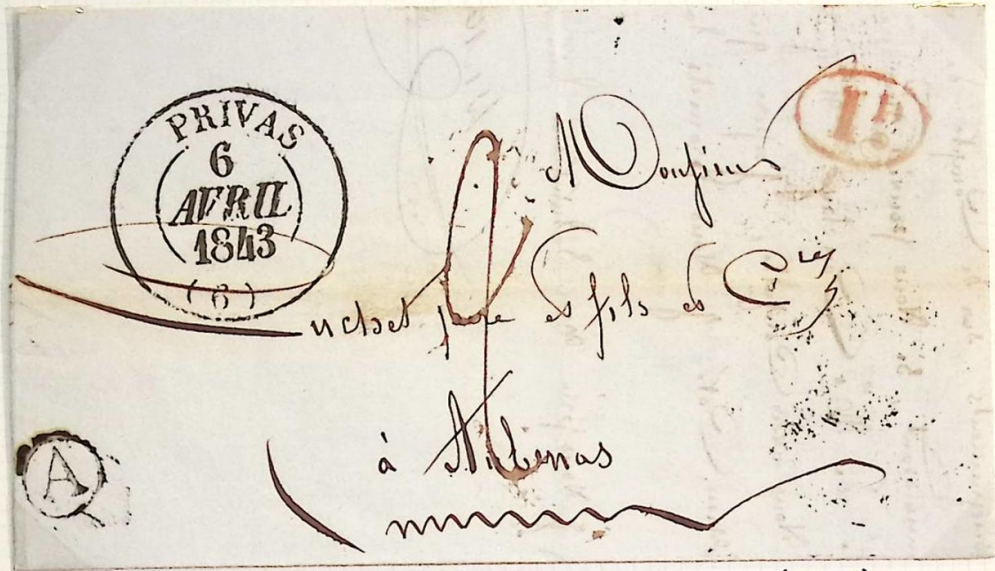 PRIVAS
6
AVRIL
1843
(6)
1D
Monsieur
père et fils et Cie
à Aubenas
A